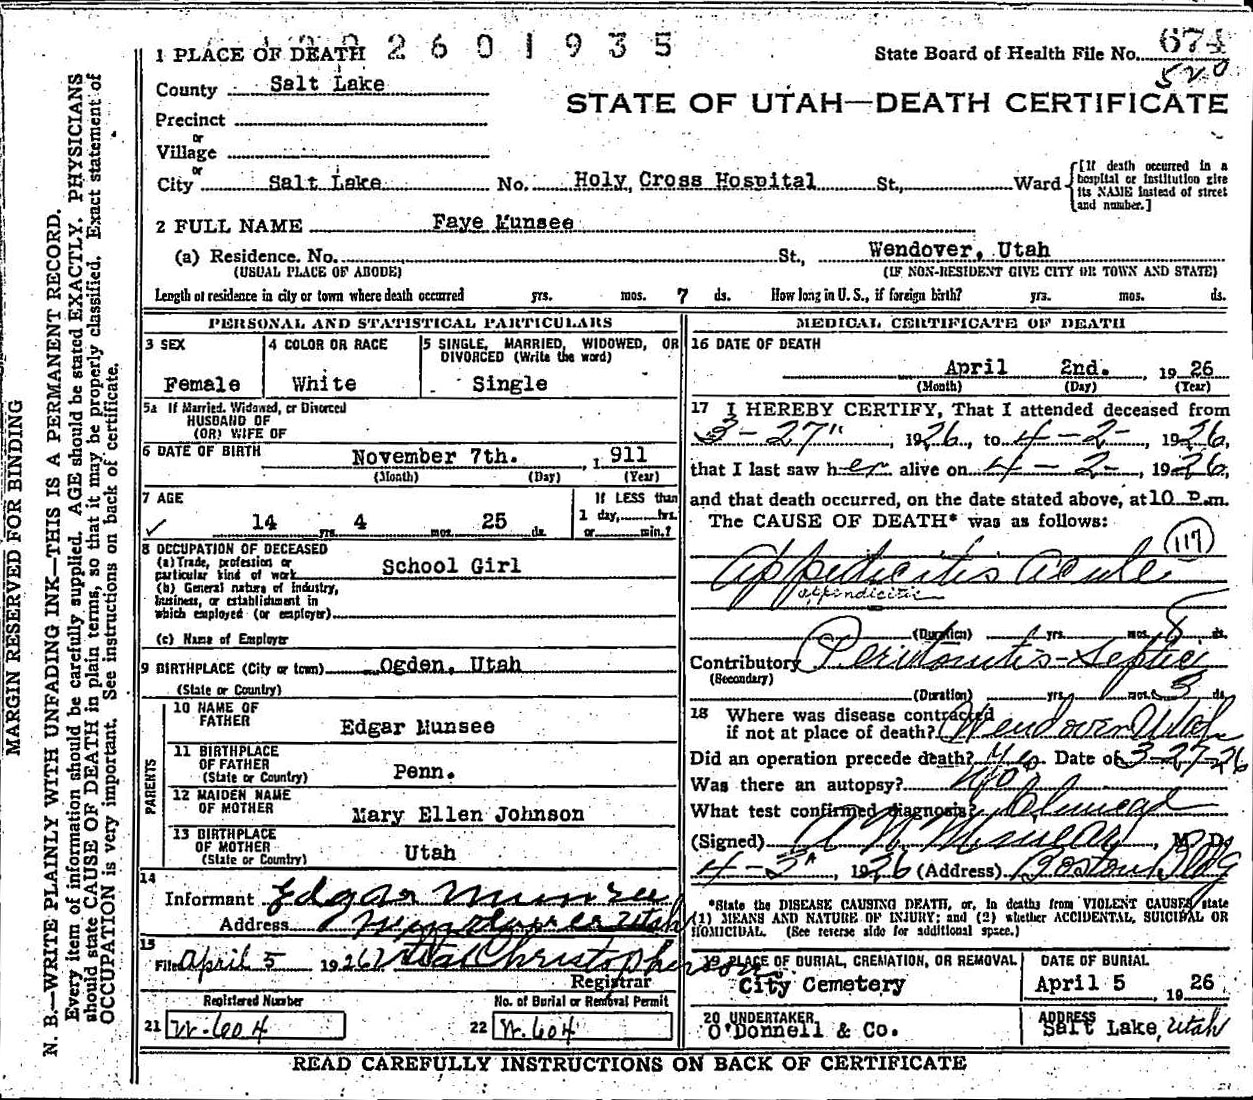 2601935
1 PLACE OF DEATH
State Board of Health File No. 674
520
County Salt Lake
STATE OF UTAH—DEATH CERTIFICATE
Precinct
or
Village
or
City Salt Lake No. Holy Cross Hospital St., Ward [If death occurred in a hospital or institution give its NAME instead of street and number.]
2 FULL NAME Faye Munsee
(a) Residence. No. St., Wendover, Utah
(USUAL PLACE OF ABODE) (IF NON-RESIDENT GIVE CITY OR TOWN AND STATE)
Length of residence in city or town where death occurred yrs. mos. 7 ds. How long in U. S., if foreign birth? yrs. mos. ds.
PERSONAL AND STATISTICAL PARTICULARS
3 SEX
Female
4 COLOR OR RACE
White
5 SINGLE, MARRIED, WIDOWED, OR
DIVORCED (Write the word)
Single
5a If Married, Widowed, or Divorced
HUSBAND OF
(OR) WIFE OF
6 DATE OF BIRTH
November 7th. , 1911
(Month) (Day) (Year)
7 AGE
14 yrs. 4 mos. 25 ds.
If LESS than
1 day, hrs.
or min.?
8 OCCUPATION OF DECEASED
(a) Trade, profession or
particular kind of work School Girl
(b) General nature of industry,
business, or establishment in
which employed (or employer)
(c) Name of Employer
9 BIRTHPLACE (City or town) Ogden, Utah
(State or Country)
PARENTS
10 NAME OF
FATHER
Edgar Munsee
11 BIRTHPLACE
OF FATHER
(State or Country)
Penn.
12 MAIDEN NAME
OF MOTHER
Mary Ellen Johnson
13 BIRTHPLACE
OF MOTHER
(State or Country)
Utah
14
Informant Edgar Munsee
Address Windover Utah
15
Filed April 5 1926 Christopherson
Registrar
Registered Number
No. of Burial or Removal Permit
21 W-604
22 W.604
MEDICAL CERTIFICATE OF DEATH
16 DATE OF DEATH
April 2nd. , 1926
(Month) (Day) (Year)
17 I HEREBY CERTIFY, That I attended deceased from
3-27", 1926, to 4-2-, 1926,
that I last saw her alive on 4-2-, 1926,
and that death occurred, on the date stated above, at 10 P.m.
The CAUSE OF DEATH* was as follows:
117
Appedicitis acute
appendicitis
(Duration) yrs. mos. 8 ds.
Contributory Peritonitis-Septic
(Secondary)
(Duration) yrs. mos. 3 ds.
18 Where was disease contracted
if not at place of death? Wendover Utah
Did an operation precede death? Yes. Date of 3-27-26
Was there an autopsy? No
What test confirmed diagnosis? Clinical
(Signed) , M. D.
4-2, 1926 (Address) Boston Bldg
*State the DISEASE CAUSING DEATH, or, in deaths from VIOLENT CAUSES, state
(1) MEANS AND NATURE OF INJURY; and (2) whether ACCIDENTAL, SUICIDAL OR
HOMICIDAL. (See reverse side for additional space.)
19 PLACE OF BURIAL, CREMATION, OR REMOVAL
City Cemetery
DATE OF BURIAL
April 5 , 1926
20 UNDERTAKER
O'Donnell & Co.
ADDRESS
Salt Lake, Utah
READ CAREFULLY INSTRUCTIONS ON BACK OF CERTIFICATE
MARGIN RESERVED FOR BINDING
N. B.—WRITE PLAINLY WITH UNFADING INK—THIS IS A PERMANENT RECORD.
Every item of information should be carefully supplied. AGE should be stated EXACTLY. PHYSICIANS
should state CAUSE OF DEATH in plain terms, so that it may be properly classified. Exact statement of
OCCUPATION is very important. See instructions on back of certificate.